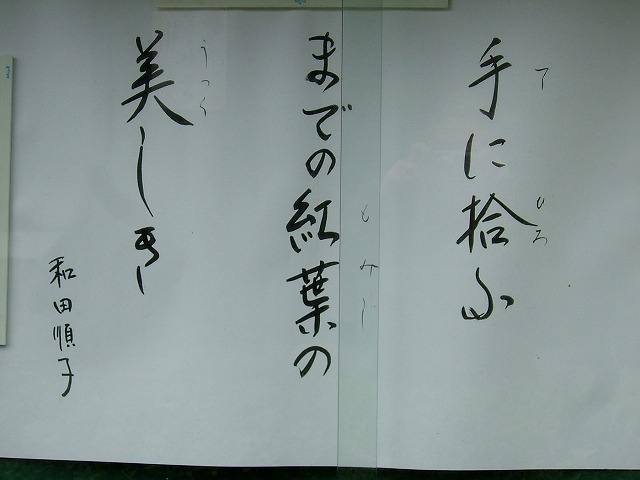 手に拾ふ
て ひろ
までの紅葉の
もみじ
美しき
うつく
和田順子